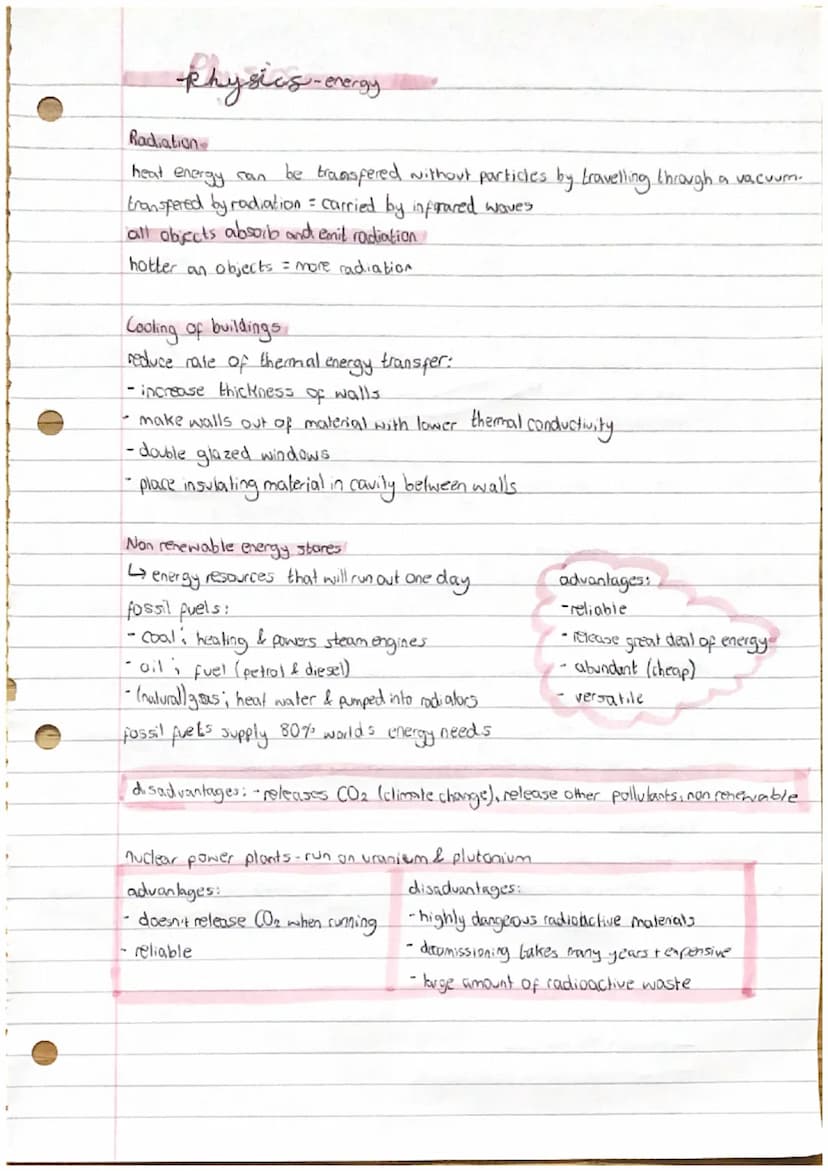 Physics - energy
Radiation
heat energy can be transfered without particles by travelling through a vacuum.
transfered by radiation = carried by infrared waves
all objects absorb and emit radiation
hotter an objects = more radiation
Cooling of buildings
reduce rate of thermal energy transfer:
- increase thickness of walls
- make walls out of material with lower thermal conductivity
- double glazed windows
- place insulating material in cavity between walls
Non renewable energy stores
↳ energy resources that will run out one day
fossil fuels:
- coal; heating & powers steam engines
- oil; fuel (petrol & diesel)
- (natural) gas; heat water & pumped into radiators
fossil fuels supply 80% worlds energy needs
advantages:
- reliable
- release great deal of energy
- abundant (cheap)
- versatile
disadvantages: - releases CO2 (climate change), release other pollutants, non renewable
nuclear power plants - run on uranium & plutonium
advantages:
- doesn't release CO2 when running
- reliable
disadvantages:
- highly dangeous radioactive materials
- decomissioning takes many years + expensive
- large amount of radioactive waste